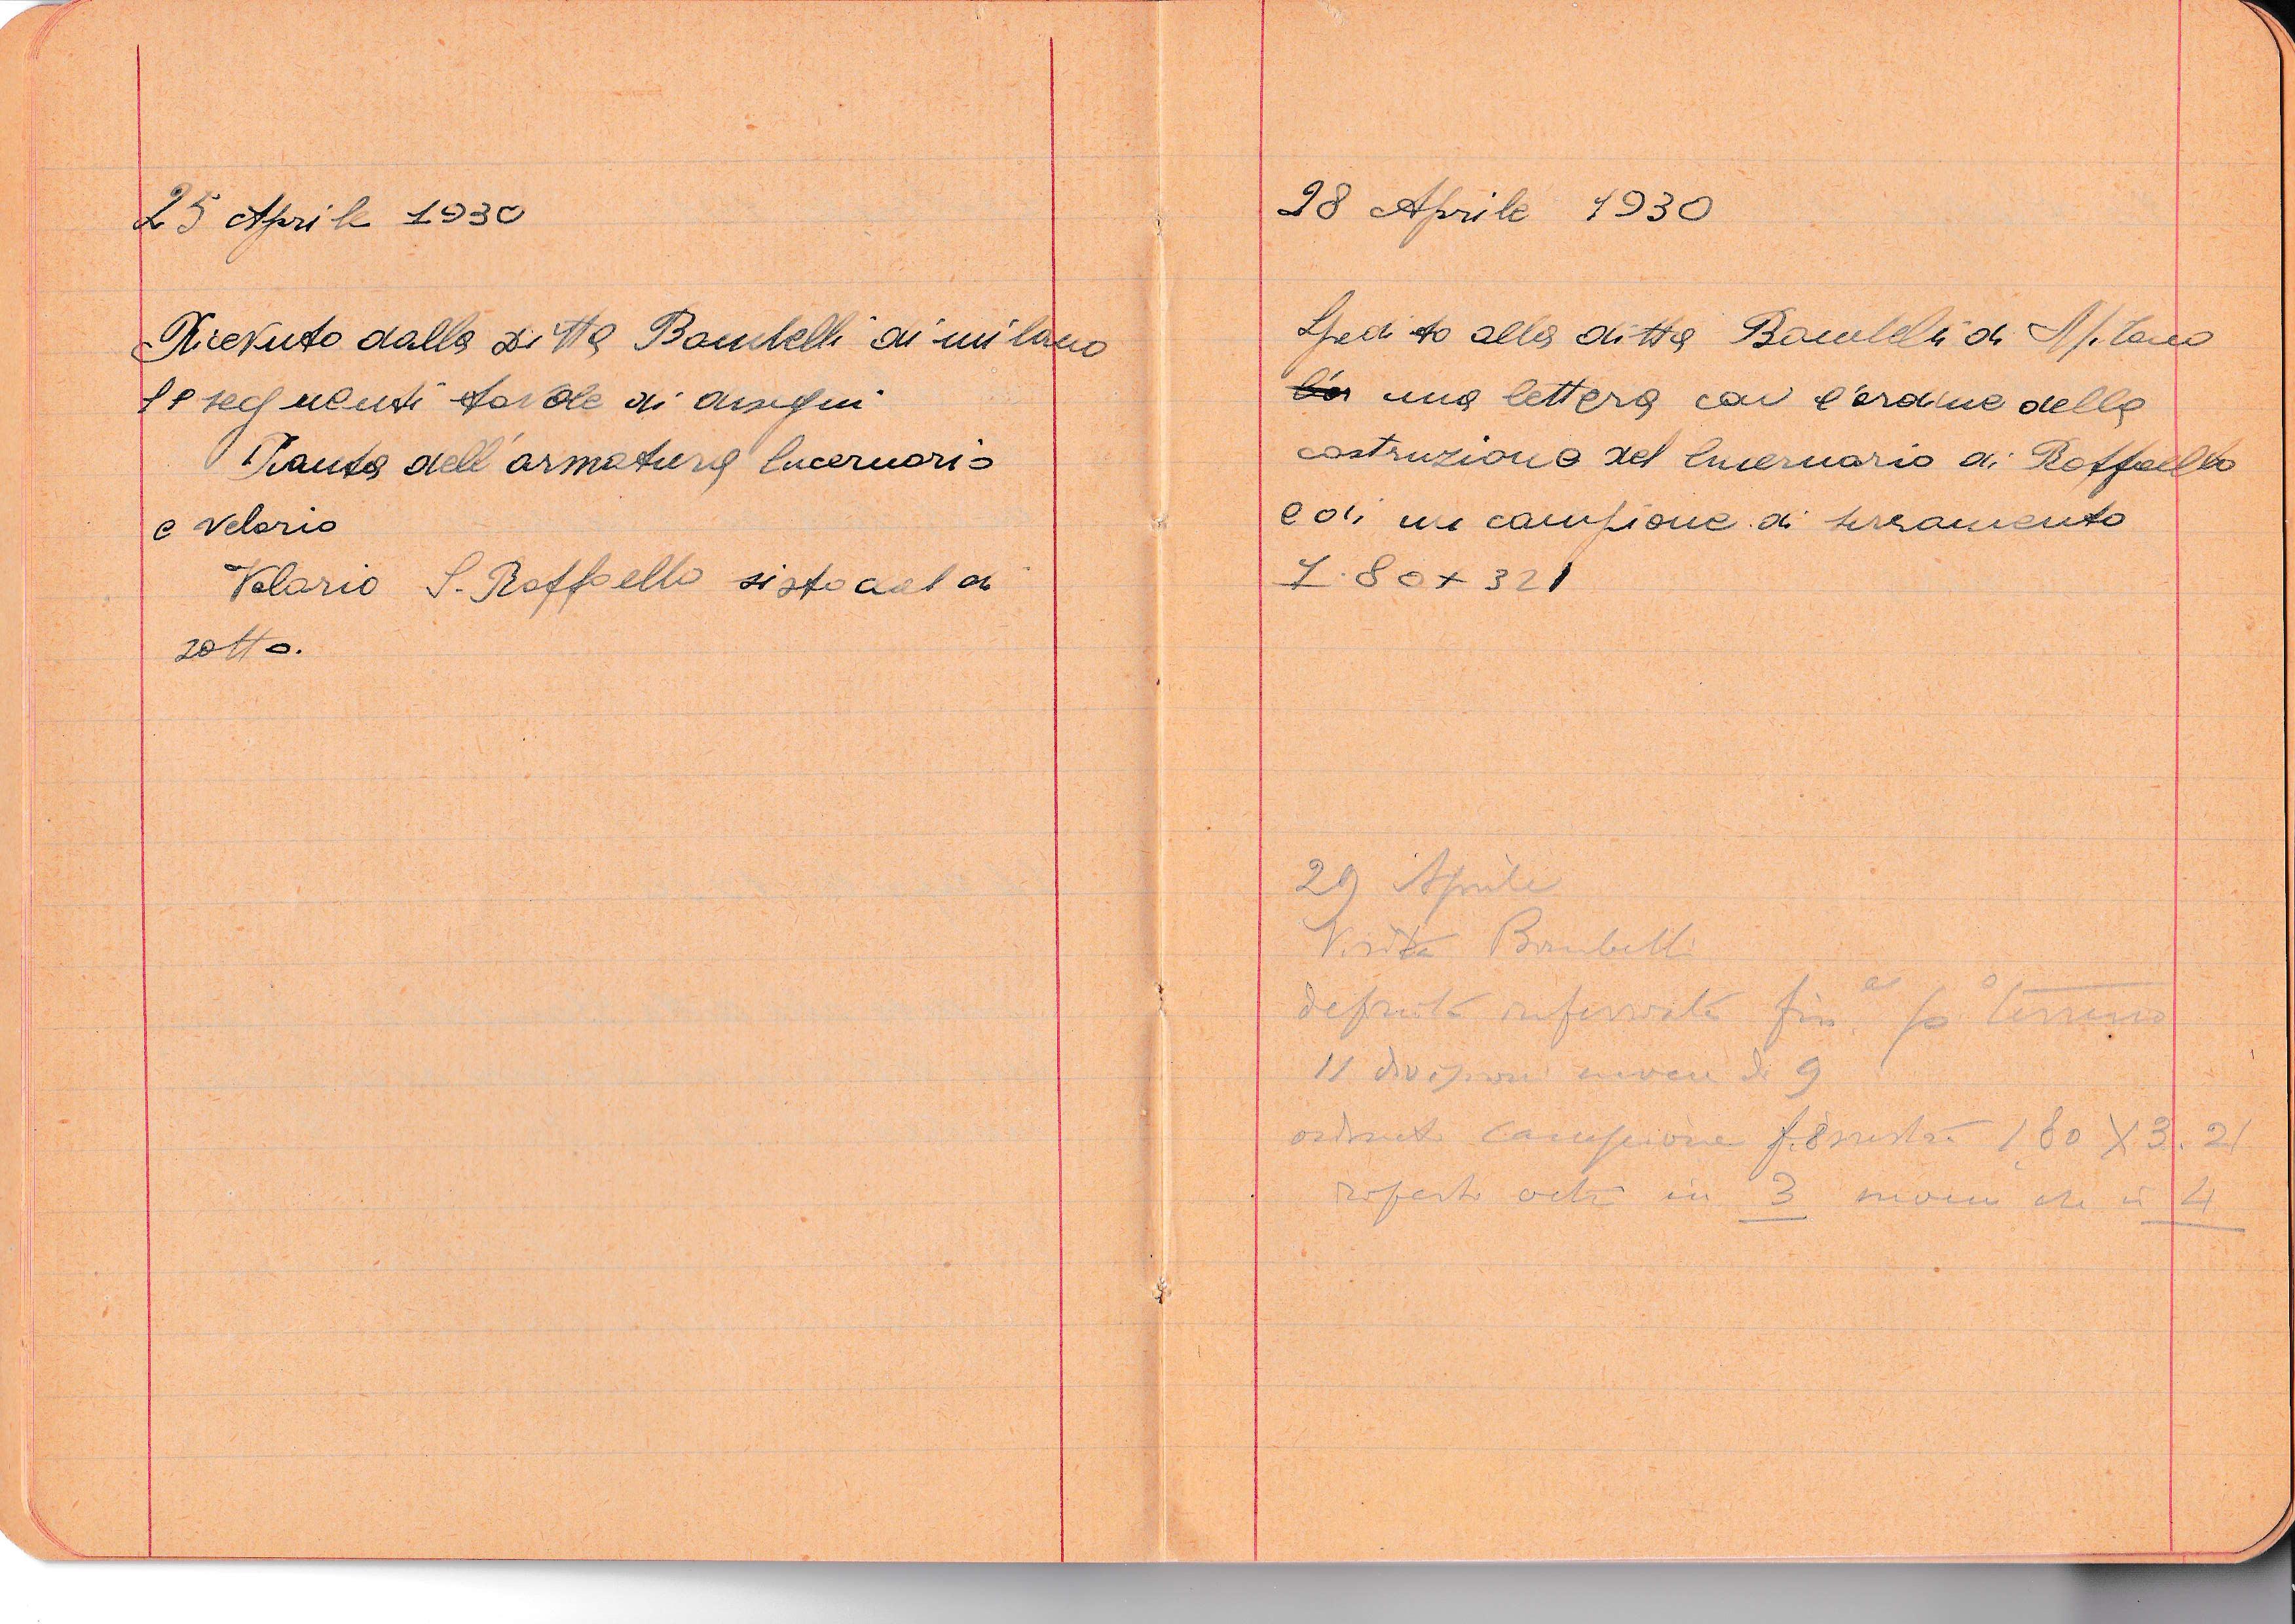 25 Aprile 1930
Ricevuto dalla Ditta Bombelli di milano
le seguenti tavole di disegni
Pianta dell'armatura lucernario
e velario
Velario S. Raffaello visto dal di
sotto.
28 Aprile 1930
Spedito alla ditta Bombelli di Milano
una lettera con l'ordine della
costruzione del lucernario di Raffaello
e di un campione di serramento
1.80 x 321
29 Aprile
Visita Bombelli
definita inferriata fin. po terreno
11 divisioni invece di 9
ordinato campione finestra 1,80 X 3.21
in 3 invece che in 4